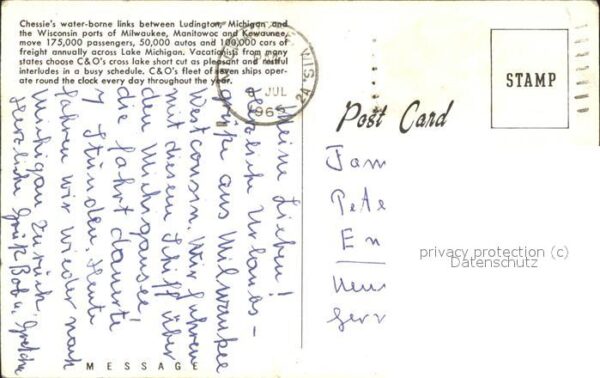 Chessie's water-borne links between Ludington, Michigan and
the Wisconsin ports of Milwaukee, Manitowoc and Kewaunee,
move 175,000 passengers, 50,000 autos and 100,000 cars of
freight annually across Lake Michigan. Vacationists from many
states choose C&O's cross lake short cut as pleasant and restful
interludes in a busy schedule. C&O's fleet of seven ships oper-
ate round the clock every day throughout the year.
WIS
JUL
196
Meine Lieben!
Herzliche Urlaubs-
grüße aus Milwaukee
Westconsin. Wir fuhren
mit diesem Schiff über
den Michigansee,
die Fahrt dauerte
7 Stunden. Heute
fahren wir wieder nach
Michigan zurück.
Herzliche Grüße Bob u. Gretchen
MESSAGE
Post Card
STAMP
Fam
Pete
En
Neus
Germ
privacy protection (c)
Datenschutz